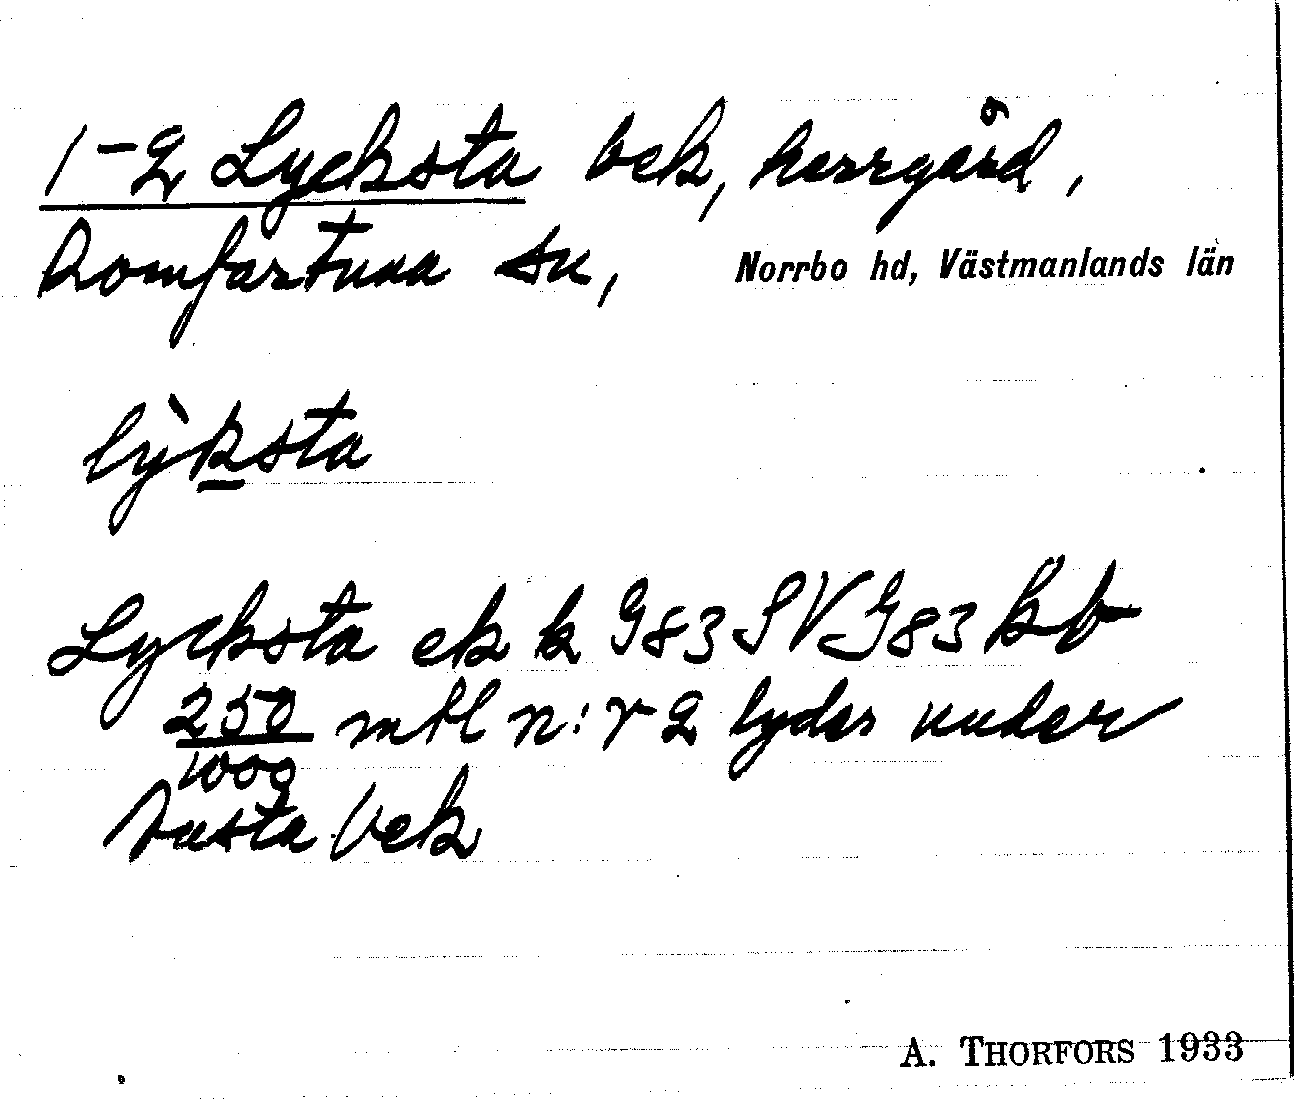 1-2 Lycksta bck, herrgård,
Romfartuna sn, Norrbo hd, Västmanlands län
lỳksta
Lycksta ek k G83 SV G83 kb
250/1000 mtl n:r 2 lyder under
Tusta bck
A. THORFORS 1933